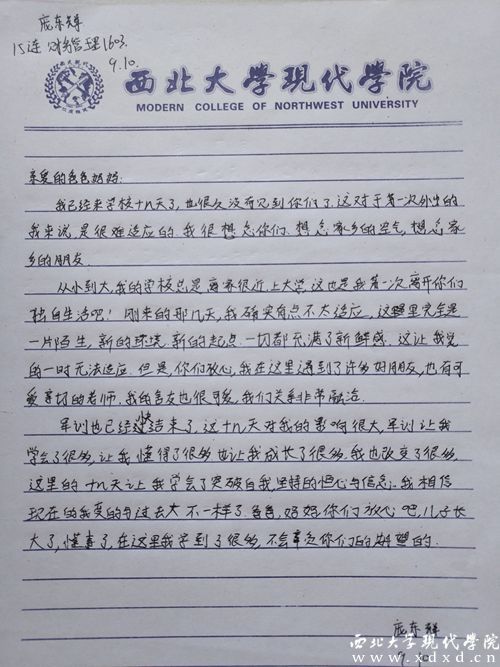 庞东辉
15连 财务管理1603.
9.10.
西北大學現代學院
MODERN COLLEGE OF NORTHWEST UNIVERSITY
亲爱的爸爸妈妈:
我已经来学校十几天了,也很久没有见到你们了.这对于第一次外出的
我来说,是很难适应的.我很想念你们.想念家乡的空气,想念家
乡的朋友.
从小到大,我的学校总是离家很近,上大学这也是我第一次离开你们
独自生活吧!刚来的那几天,我确实有点不太适应,这里完全是
一片陌生,新的环境,新的起点.一切都充满了新鲜感.这让我觉
的一时无法适应.但是,你们放心,我在这里遇到了许多好朋友,也有可
爱亲切的老师.我的舍友也很可爱,我们关系非常融洽.
军训也已经快结束了,这十几天对我的影响很大,军训让我
学会了很多,让我懂得了很多也让我成长了很多.我也改变了很多.
这里的十几天让我学会了突破自我坚持的恒心与信念.我相信
现在的我变的与过去大不一样了.爸爸,妈妈,你们放心吧,儿子长
大了,懂事了,在这里我学到了很多,不会辜负你们的期望的.
庞东辉
西北大学现代学院
www.xdxd.cn